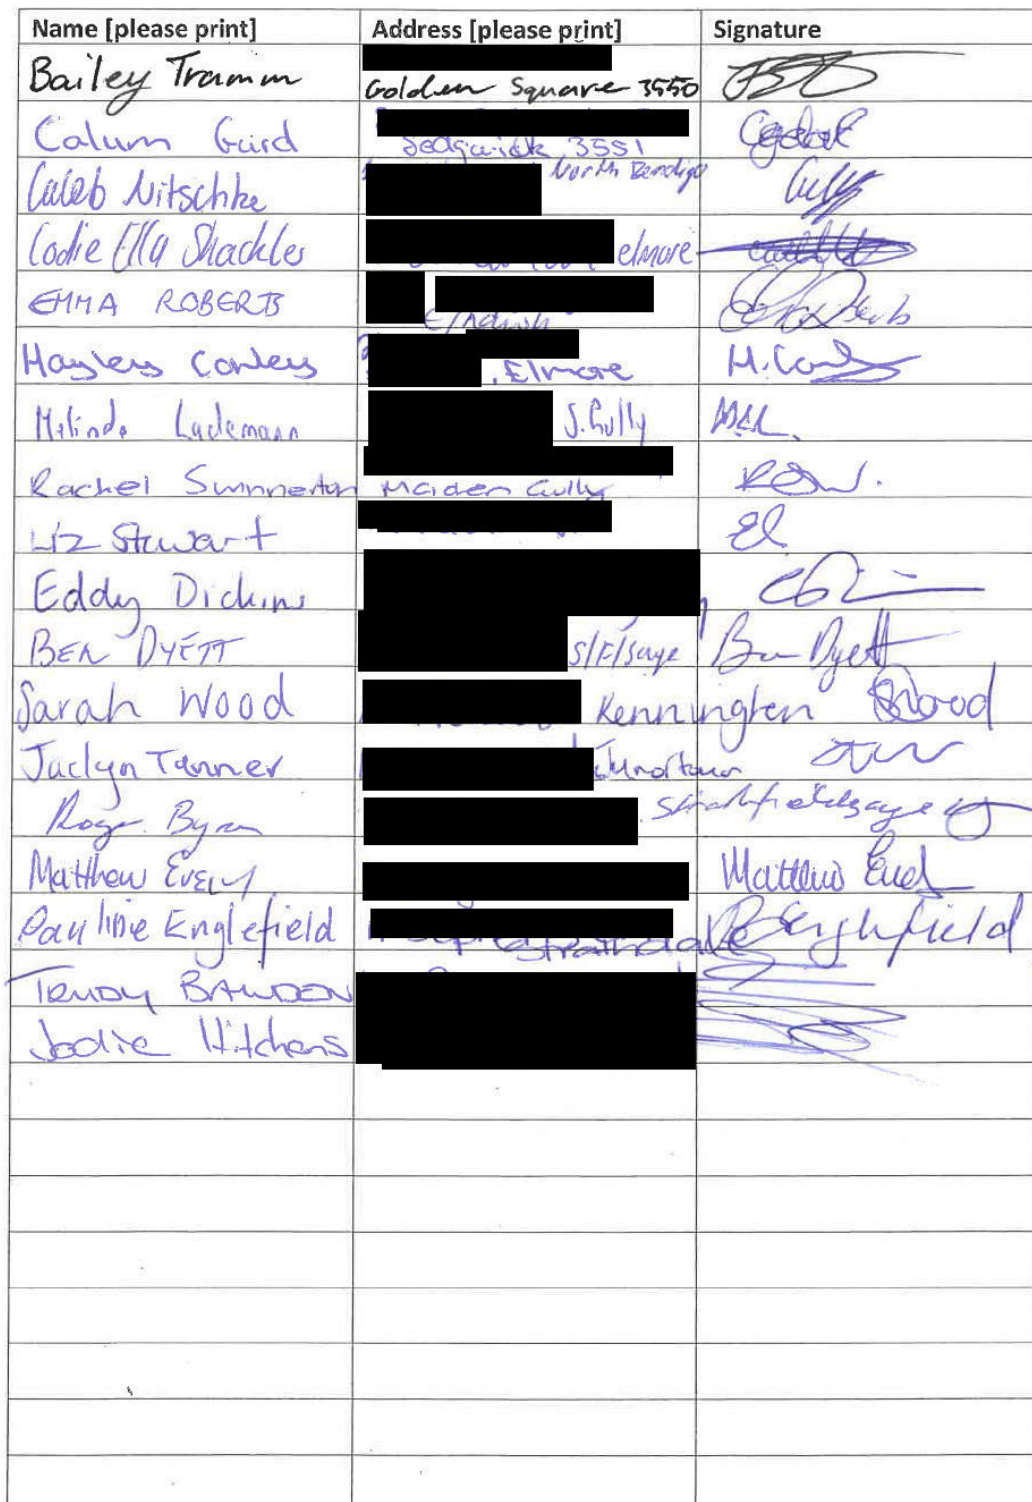 Name [please print] Address [please print] Signature
Bailey Tramm Golden Square 3550
Calum Guird Sedgwick 3551
Caleb Nitschke North Bendigo
Codie Ella Shackles elmore
EMMA ROBERTS
Hayley Conley , Elmore H. Con
Melinda Lademann J. Gully
Rachel Swinnerton Maiden Gully
Liz Stewart
Eddy Dickins
BEN DYETT S/F/Saye Ben Dyett
Sarah Wood Kennington SWood
Jaclyn Tanner Junortoun
Roger Byrne Strathfieldsaye
Matthew Matthew
Pauline Englefield Strathdale P Englefield
TRUDY BAWDEN
Jodie Hitchens